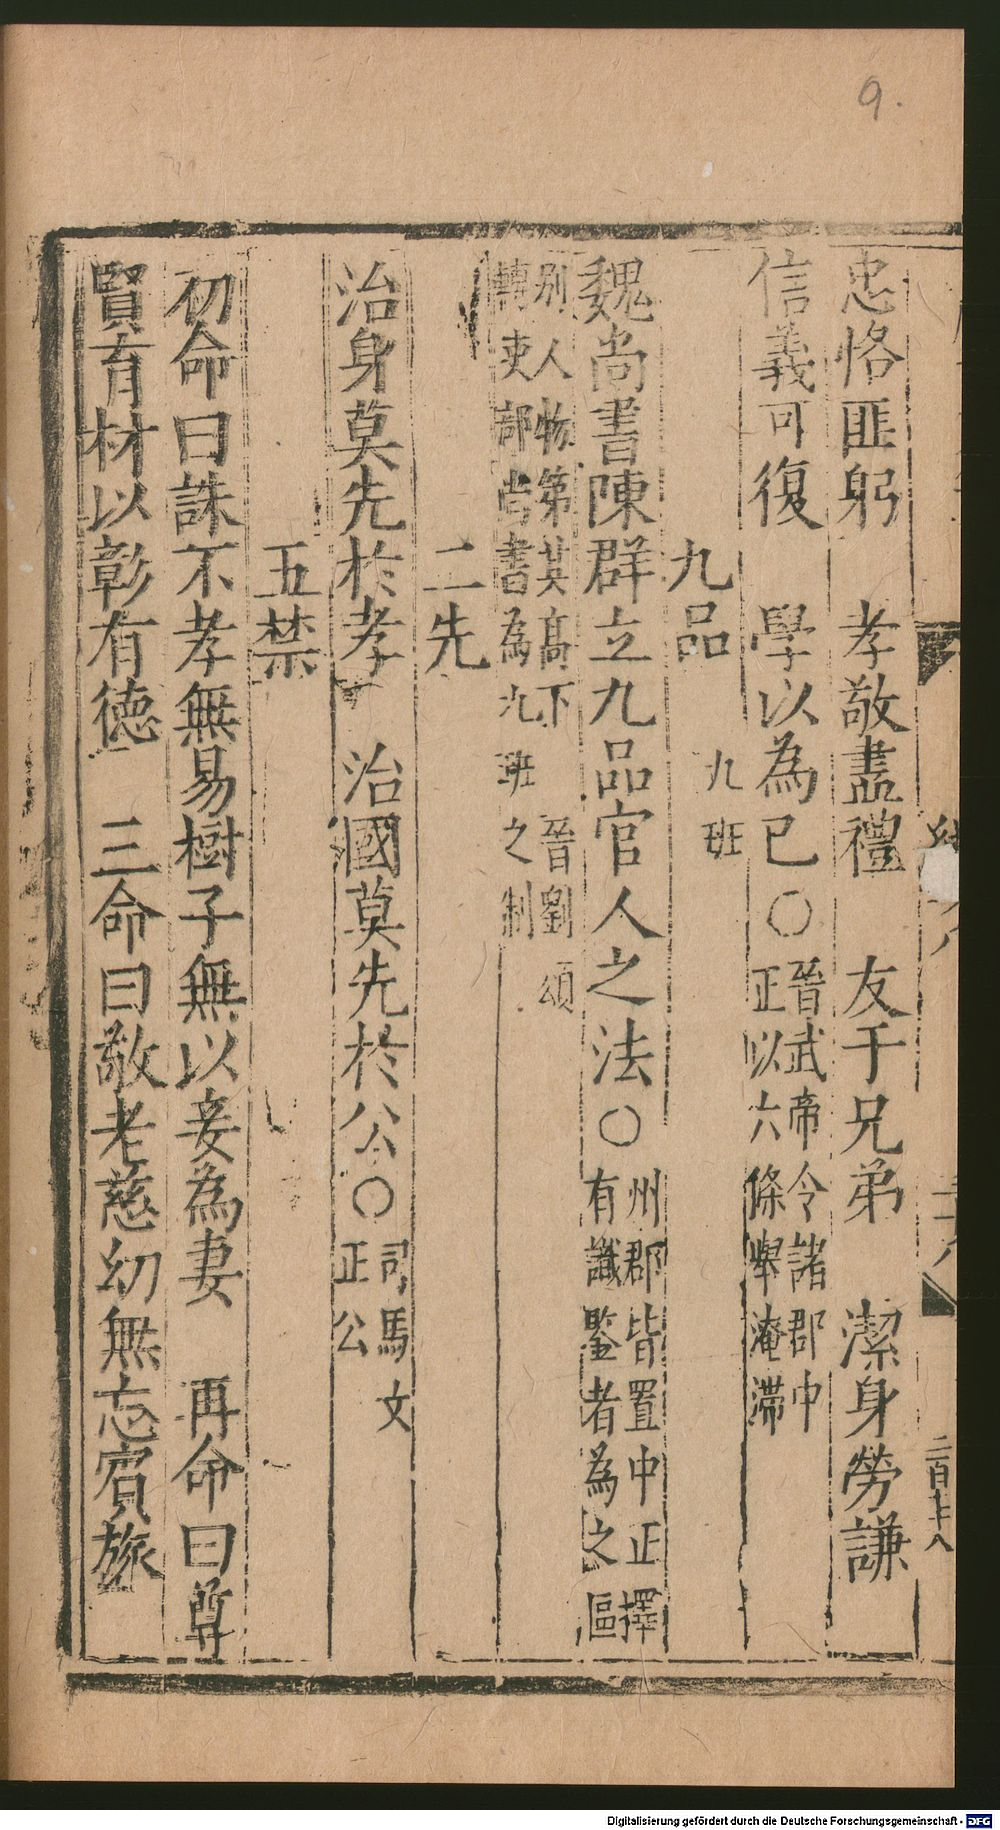 9.
忠恪匪躬　孝敬盡禮　友于兄弟　潔身勞謙
信義可復　學以為已〇晉武帝令諸郡中
正以六條舉淹滯
九品　九班
魏尚書陳群立九品官人之法〇州郡皆置中正擇
有識鑒者為之區
别人物第其高下　晉劉頌
轉吏部尚書為九班之制
二先
治身莫先於孝　治國莫先於公〇司馬文
正公
五禁
初命曰誅不孝無易樹子無以妾為妻　再命曰尊
賢育材以彰有德　三命曰敬老慈幼無忘賓旅
Digitalisierung gefördert durch die Deutsche Forschungsgemeinschaft - DFG